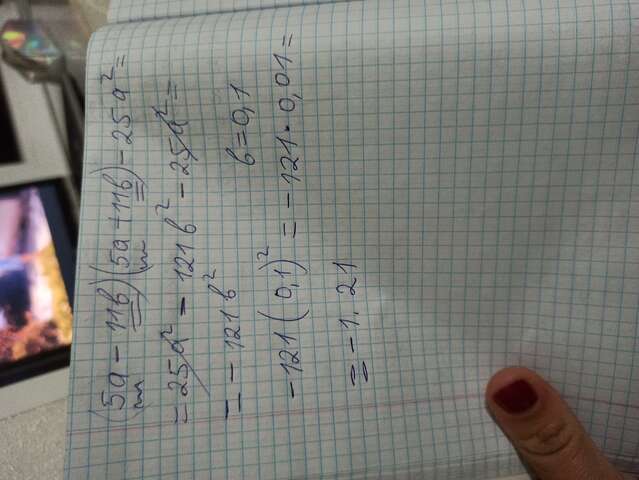 (5a - 11b)(5a + 11b) - 25a² =
= 25a² - 121b² - 25a² =
= - 121b² b = 0,1
-121(0,1)² = -121 · 0,01 =
= -1,21